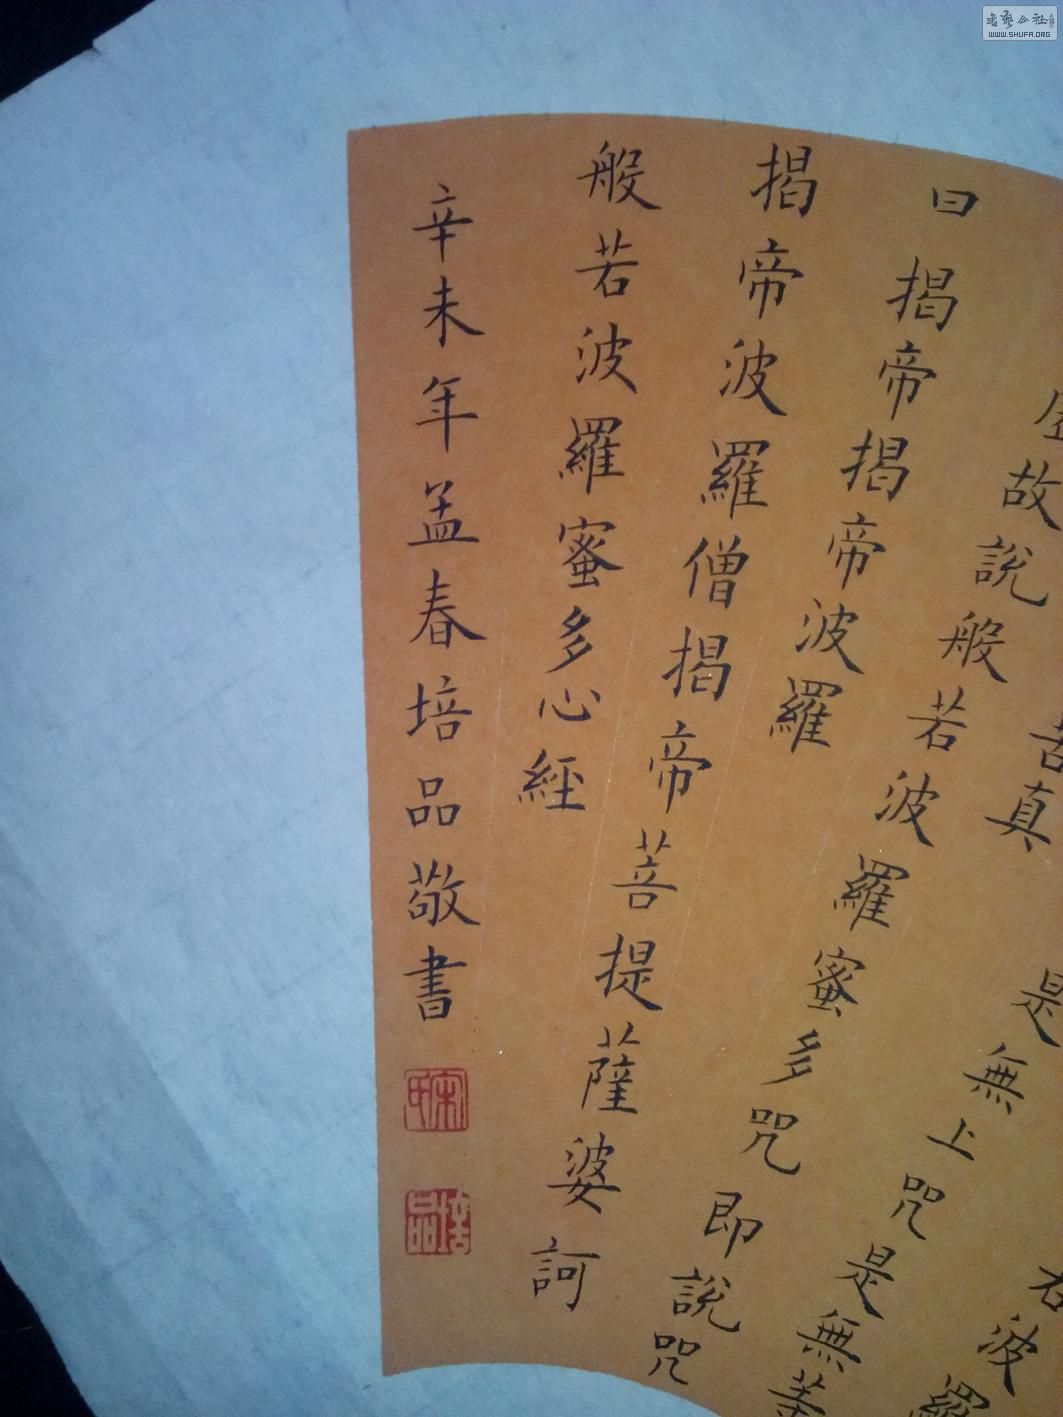 若波羅
是無上咒是無等
苦真
虛故說般若波羅蜜多咒即說咒
曰揭帝揭帝波羅
揭帝波羅僧揭帝菩提薩婆訶
般若波羅蜜多心經
辛未年孟春培品敬書
宋氏
培品
WWW.SHUFA.ORG